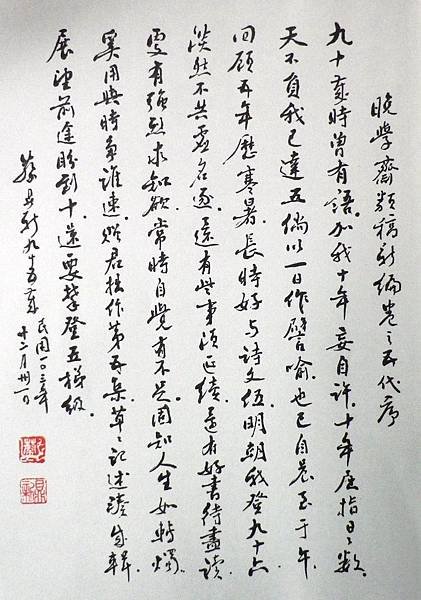 晚學齋類稿新編卷之五代序
九十歲時曾有語。加我十年妄自許。十年屈指日日數。
天不負我已達五倘以一日作譬喻。也已自晨至于午
回顧五年歷寒暑。長時好与詩文伍。明朝我登九十六
淡然不共虛名逐。還有些事須延續。還有好書待盡讀
更有強烈求知欲。常時自覺有不足。固知人生如轉燭。
奚用與時爭誰速。貽君拙作第五集。草草記述臻成輯
展望前途盼到十。還要攀登五梯級。
蔡鼎新九十五歲
民國一〇三年
十二月卅一日